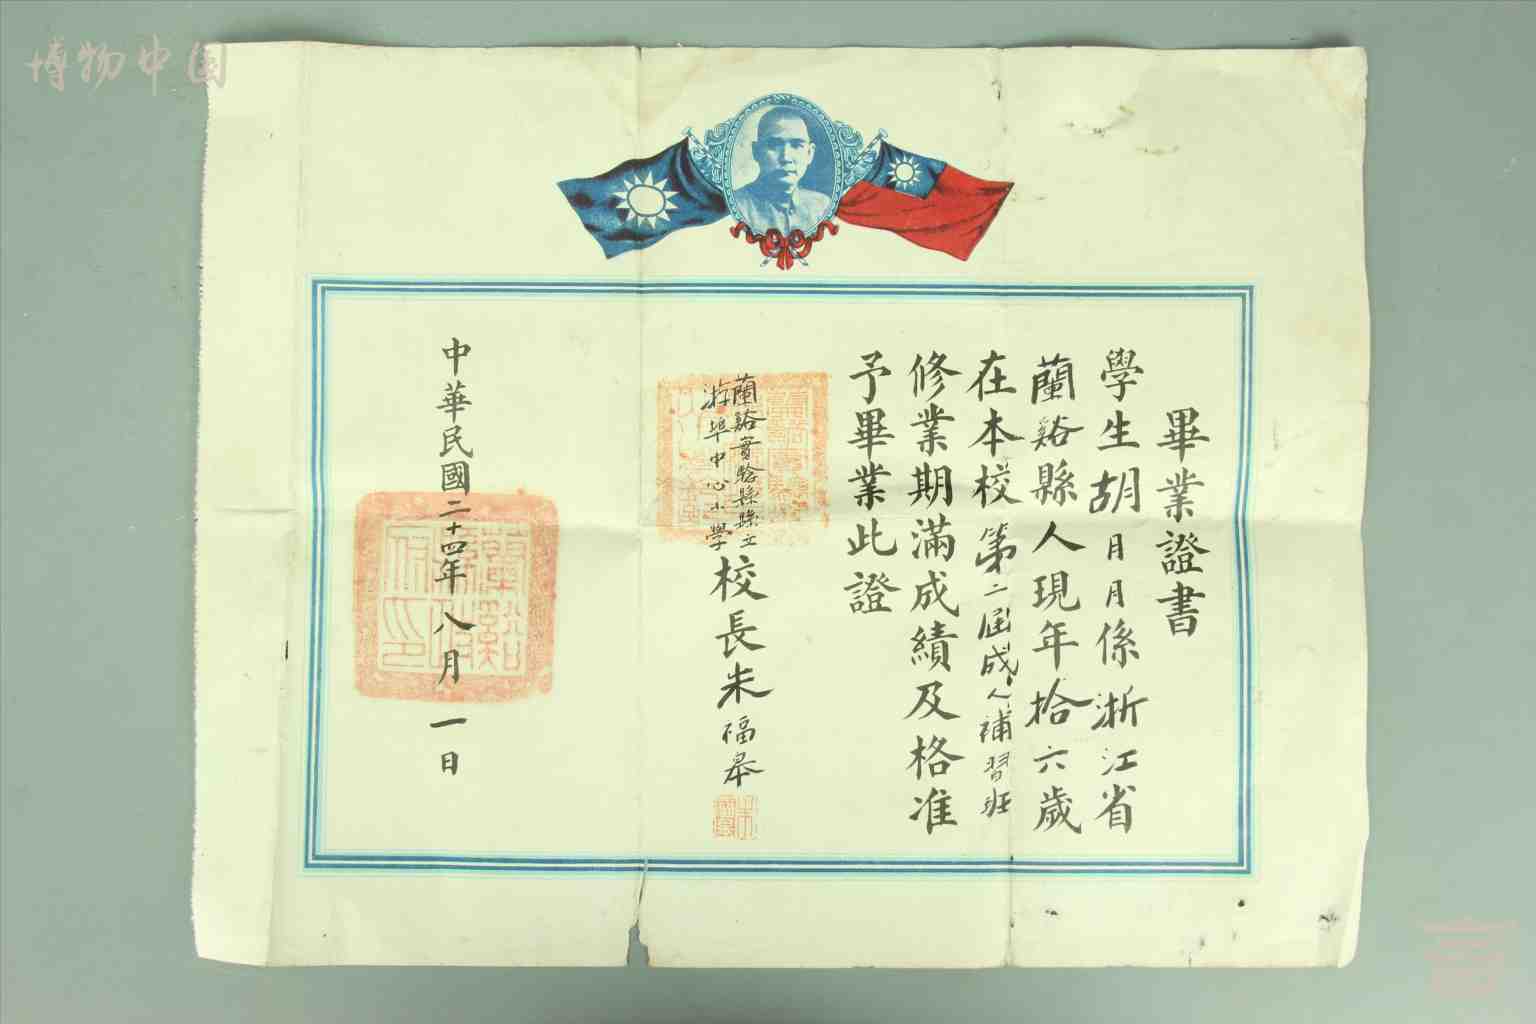 博物中国
畢業證書
學生胡月月係浙江省
蘭谿縣人現年拾六歲
在本校第二屆成人補習班
修業期滿成績及格准
予畢業此證
蘭谿實驗縣縣立
游埠中心小學
校長朱福舉
中華民國二十四年八月一日